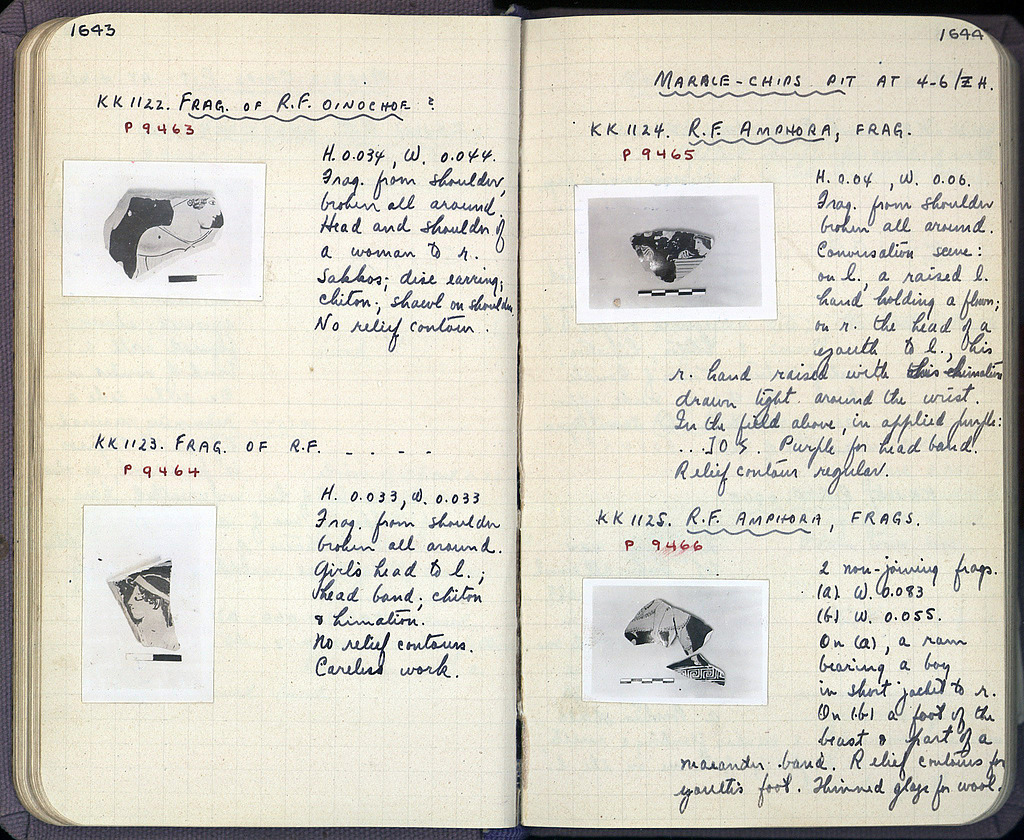 1643
KK 1122. FRAG. OF R.F. OINOCHOE ?
P 9463
H. 0.034, W. 0.044.
Frag. from shoulder,
broken all around.
Head and shoulder of
a woman to r.
Sakkos; disc earring;
chiton; shawl on shoulder.
No relief contour.
KK 1123. FRAG. OF R.F. _ . _ . _
P 9464
H. 0.033, W. 0.033
Frag. from shoulder
broken all around.
Girl's head to l.;
head band; chiton
& himation.
No relief contours.
Careless work.
1644
MARBLE-CHIPS PIT AT 4-6/ΞH.
KK 1124. R.F. AMPHORA, FRAG.
P 9465
H. 0.04, W. 0.06.
Frag. from shoulder
broken all around.
Conversation scene:
on l., a raised l.
hand holding a flower;
on r. the head of a
youth to l., his
r. hand raised with himation
drawn tight around the wrist.
In the field above, in applied purple:
...]OS. Purple for head band.
Relief contour regular.
KK 1125. R.F. AMPHORA, FRAGS.
P 9466
2 non-joining frags.
(a) W. 0.083
(b) W. 0.055.
On (a), a ram
bearing a boy
in short jacket to r.
On (b) a foot of the
beast & part of a
maeander band. Relief contours for
youth's foot. Thinned glaze for wool.